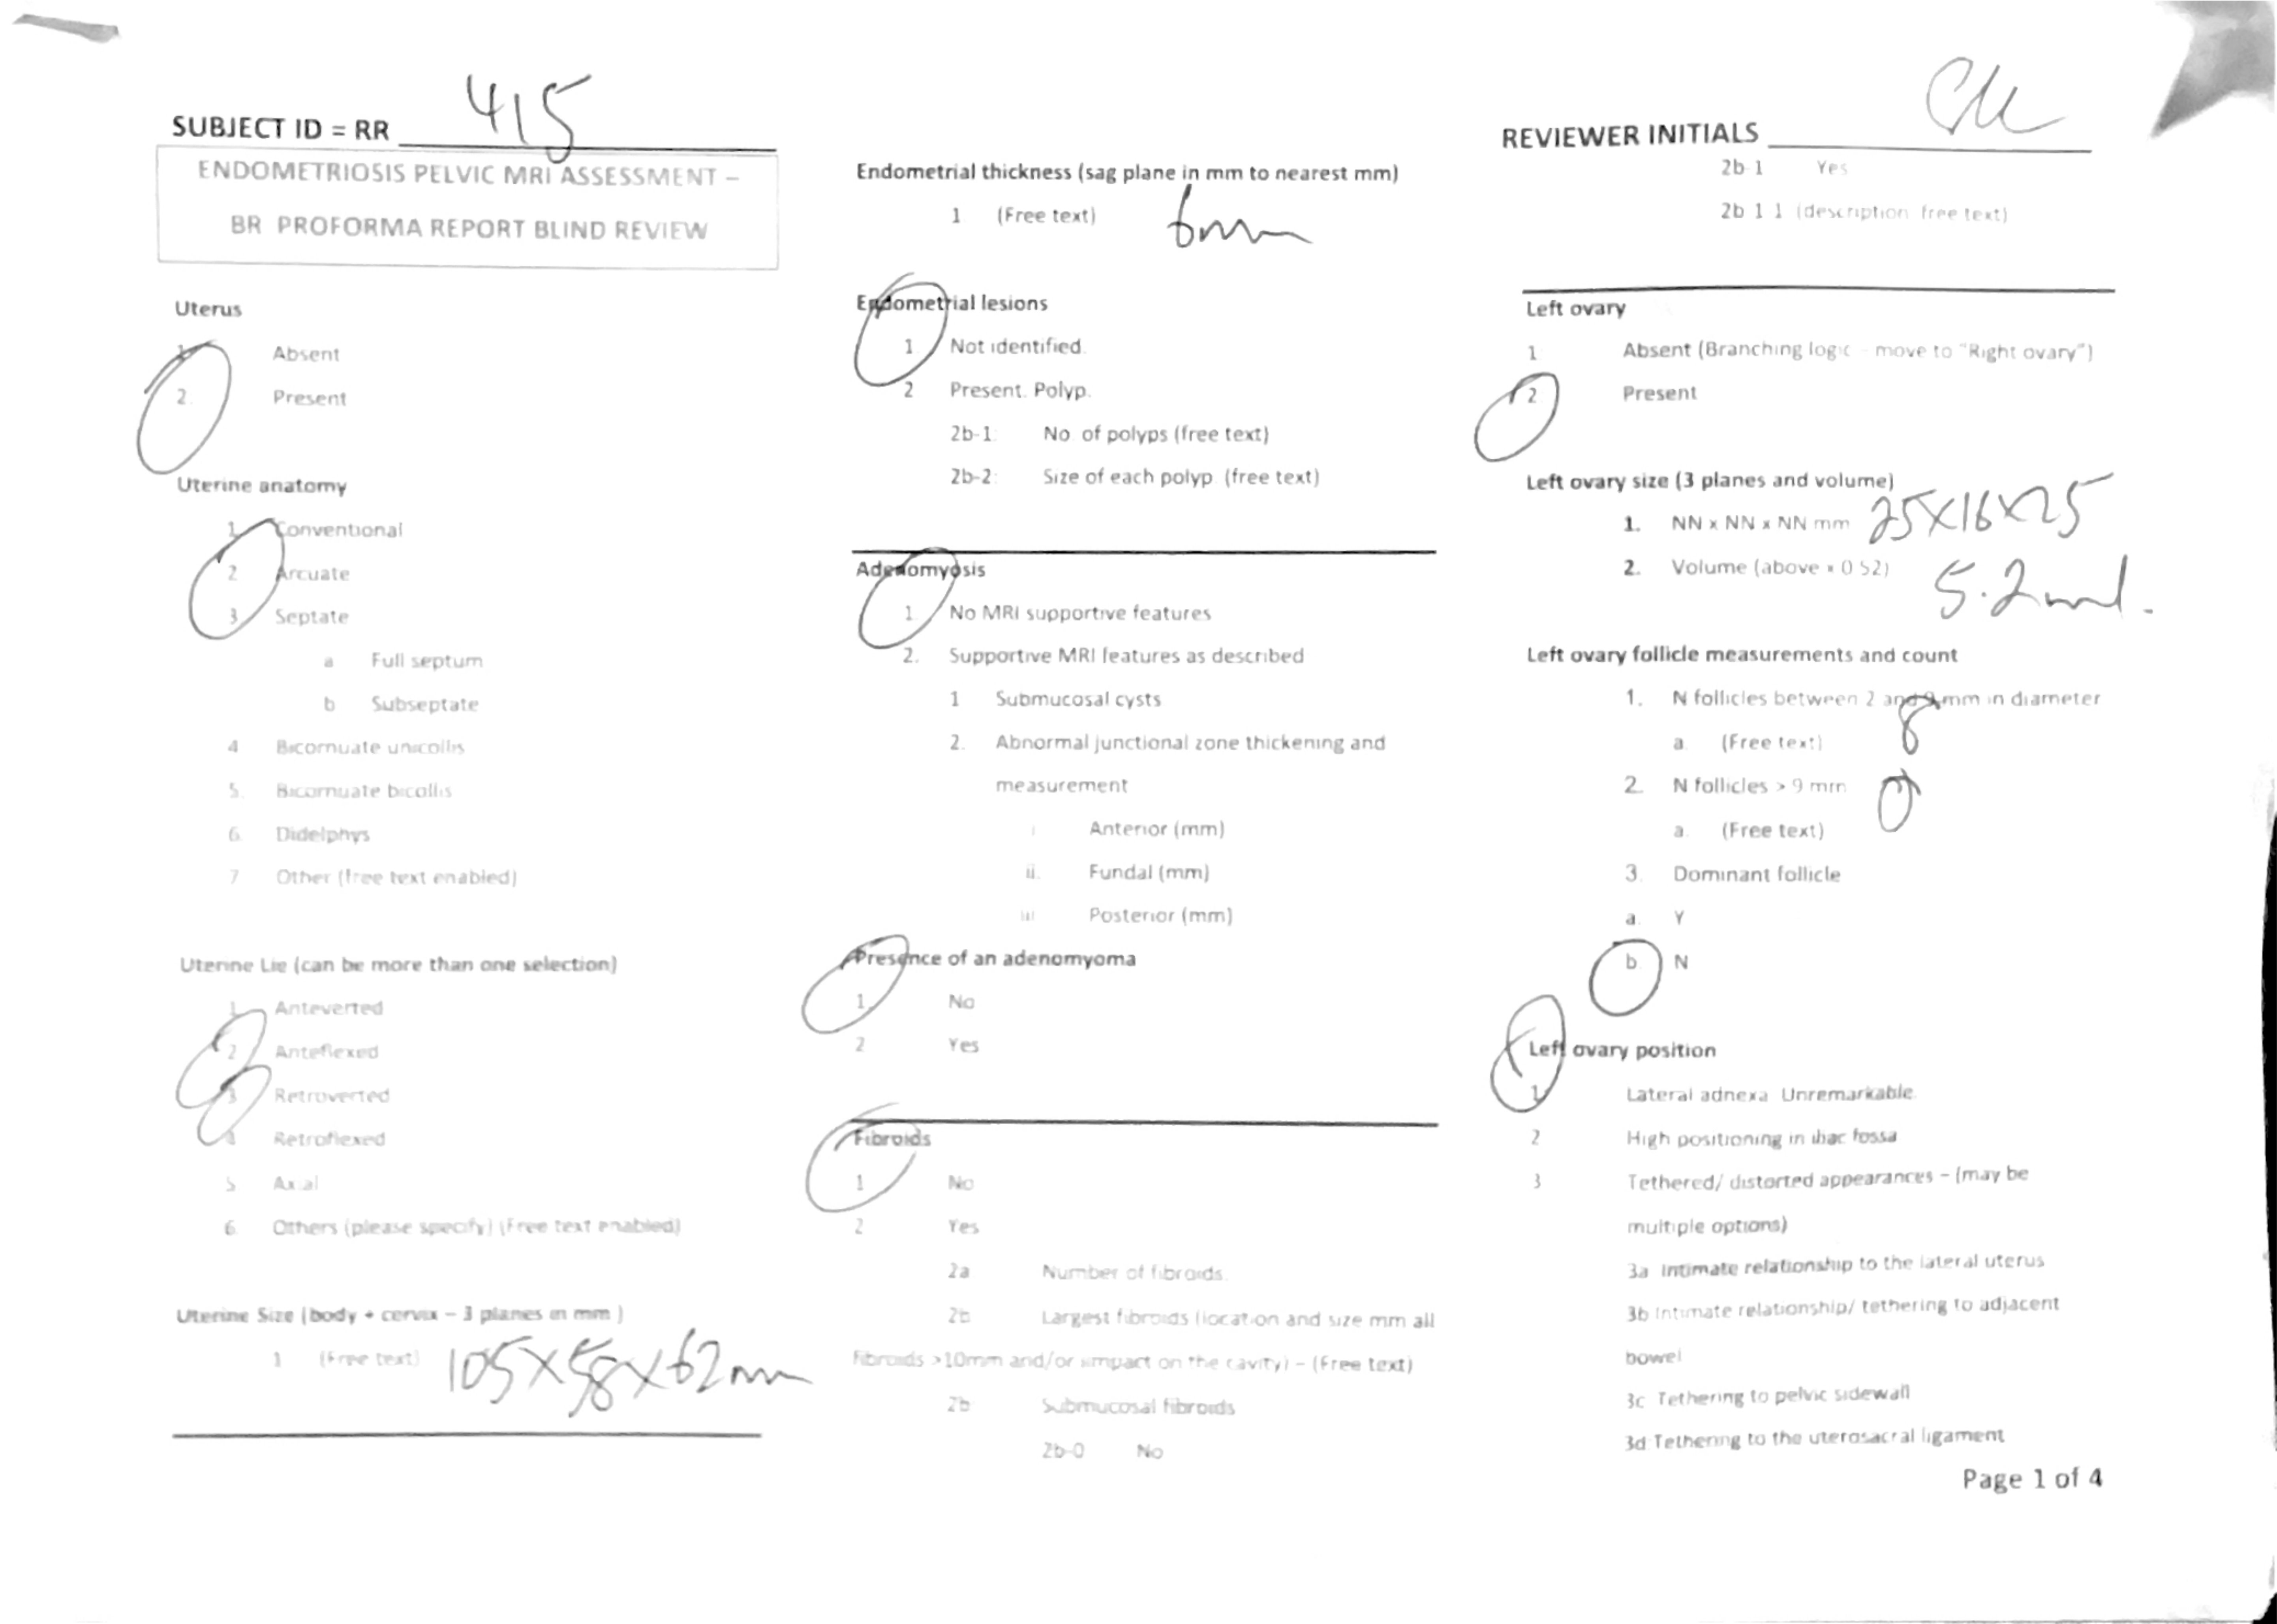 SUBJECT ID = RR 415
ENDOMETRIOSIS PELVIC MRI ASSESSMENT –
BR PROFORMA REPORT BLIND REVIEW
Uterus
1. Absent
2. Present
Uterine anatomy
1. Conventional
2 Arcuate
3 Septate
a Full septum
b Subseptate
4 Bicornuate unicollis
5. Bicornuate bicollis
6. Didelphys
7 Other (free text enabled)
Uterine Lie (can be more than one selection)
1 Anteverted
2 Anteflexed
3 Retroverted
4 Retroflexed
5 Axial
6. Others (please specify) (Free text enabled)
Uterine Size (body + cervix – 3 planes in mm )
1 (Free text) 105X58X62mm
Endometrial thickness (sag plane in mm to nearest mm)
1 (Free text) 6mm
Endometrial lesions
1 Not identified.
2 Present. Polyp.
2b-1: No of polyps (free text)
2b-2: Size of each polyp (free text)
Adenomyosis
1. No MRI supportive features
2. Supportive MRI features as described
1 Submucosal cysts
2. Abnormal junctional zone thickening and
measurement
i Anterior (mm)
ii. Fundal (mm)
iii Posterior (mm)
Presence of an adenomyoma
1 No
2 Yes
Fibroids
1 No
2 Yes
2a Number of fibroids.
2b Largest fibroids (location and size mm all
fibroids >10mm and/or impact on the cavity) – (Free text)
2b Submucosal fibroids
2b-0 No
REVIEWER INITIALS
2b-1 Yes
2b 1 1 (description free text)
Left ovary
1 Absent (Branching logic - move to "Right ovary")
2 Present
Left ovary size (3 planes and volume)
1. NN x NN x NN mm 25X16X25
2. Volume (above x 0 52) 5.2ml.
Left ovary follicle measurements and count
1. N follicles between 2 and 9 mm in diameter
a (Free text) 8
2. N follicles > 9 mm 0
a. (Free text)
3. Dominant follicle
a. Y
b. N
Left ovary position
1 Lateral adnexa Unremarkable.
2 High positioning in iliac fossa
3 Tethered/ distorted appearances – (may be
multiple options)
3a Intimate relationship to the lateral uterus
3b Intimate relationship/ tethering to adjacent
bowel
3c Tethering to pelvic sidewall
3d Tethering to the uterosacral ligament
Page 1 of 4